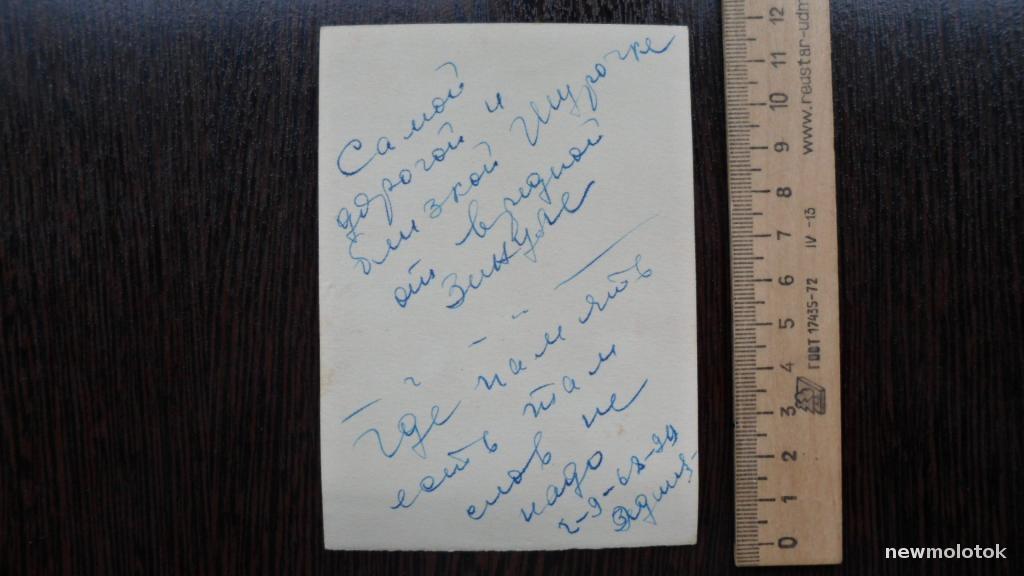 Самой
дорогой и
близкой Шурочке
от вредной
Зинуле
Где память
есть там
слов не
надо
2-9-68
newmolotok
www.reustar-udm
ГОСТ 17435-72 IV -13
0 1 2 3 4 5 6 7 8 9 10 11 12